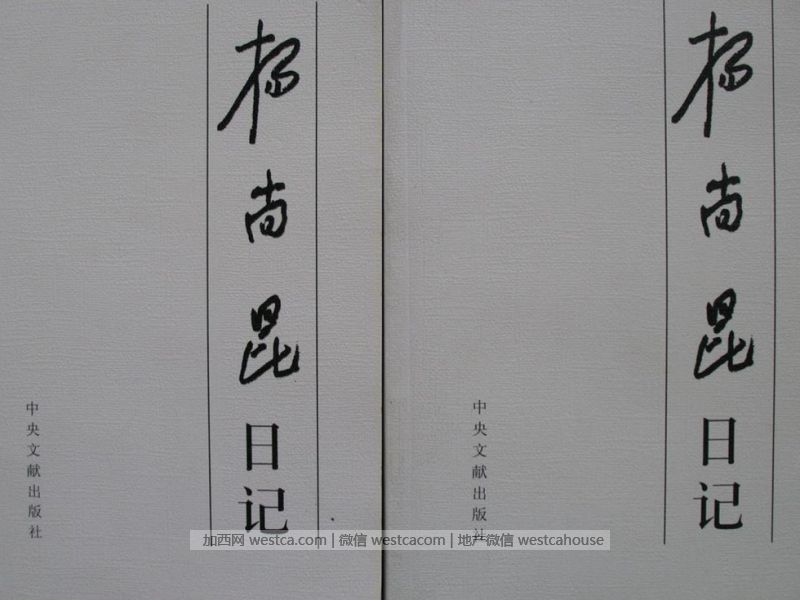 杨尚昆日记
中央文献出版社
杨尚昆日记
中央文献出版社
加西网 westca.com | 微信 westcacom | 地产微信 westcahouse